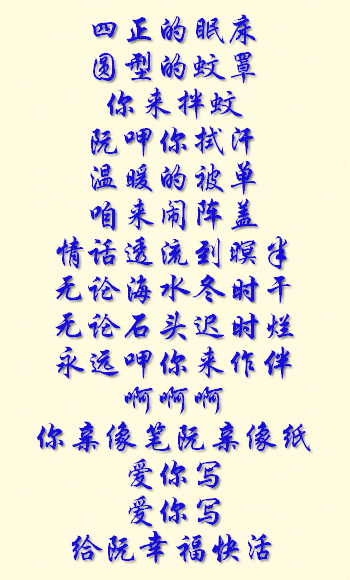 四正的眠床
圆型的蚊罩
你来拌蚊
阮呷你拭汗
温暖的被单
咱来闹阵盖
情话透流到暝半
无论海水冬时干
无论石头迟时烂
永远呷你来作伴
啊啊啊
你亲像笔阮亲像纸
爱你写
爱你写
给阮幸福快活